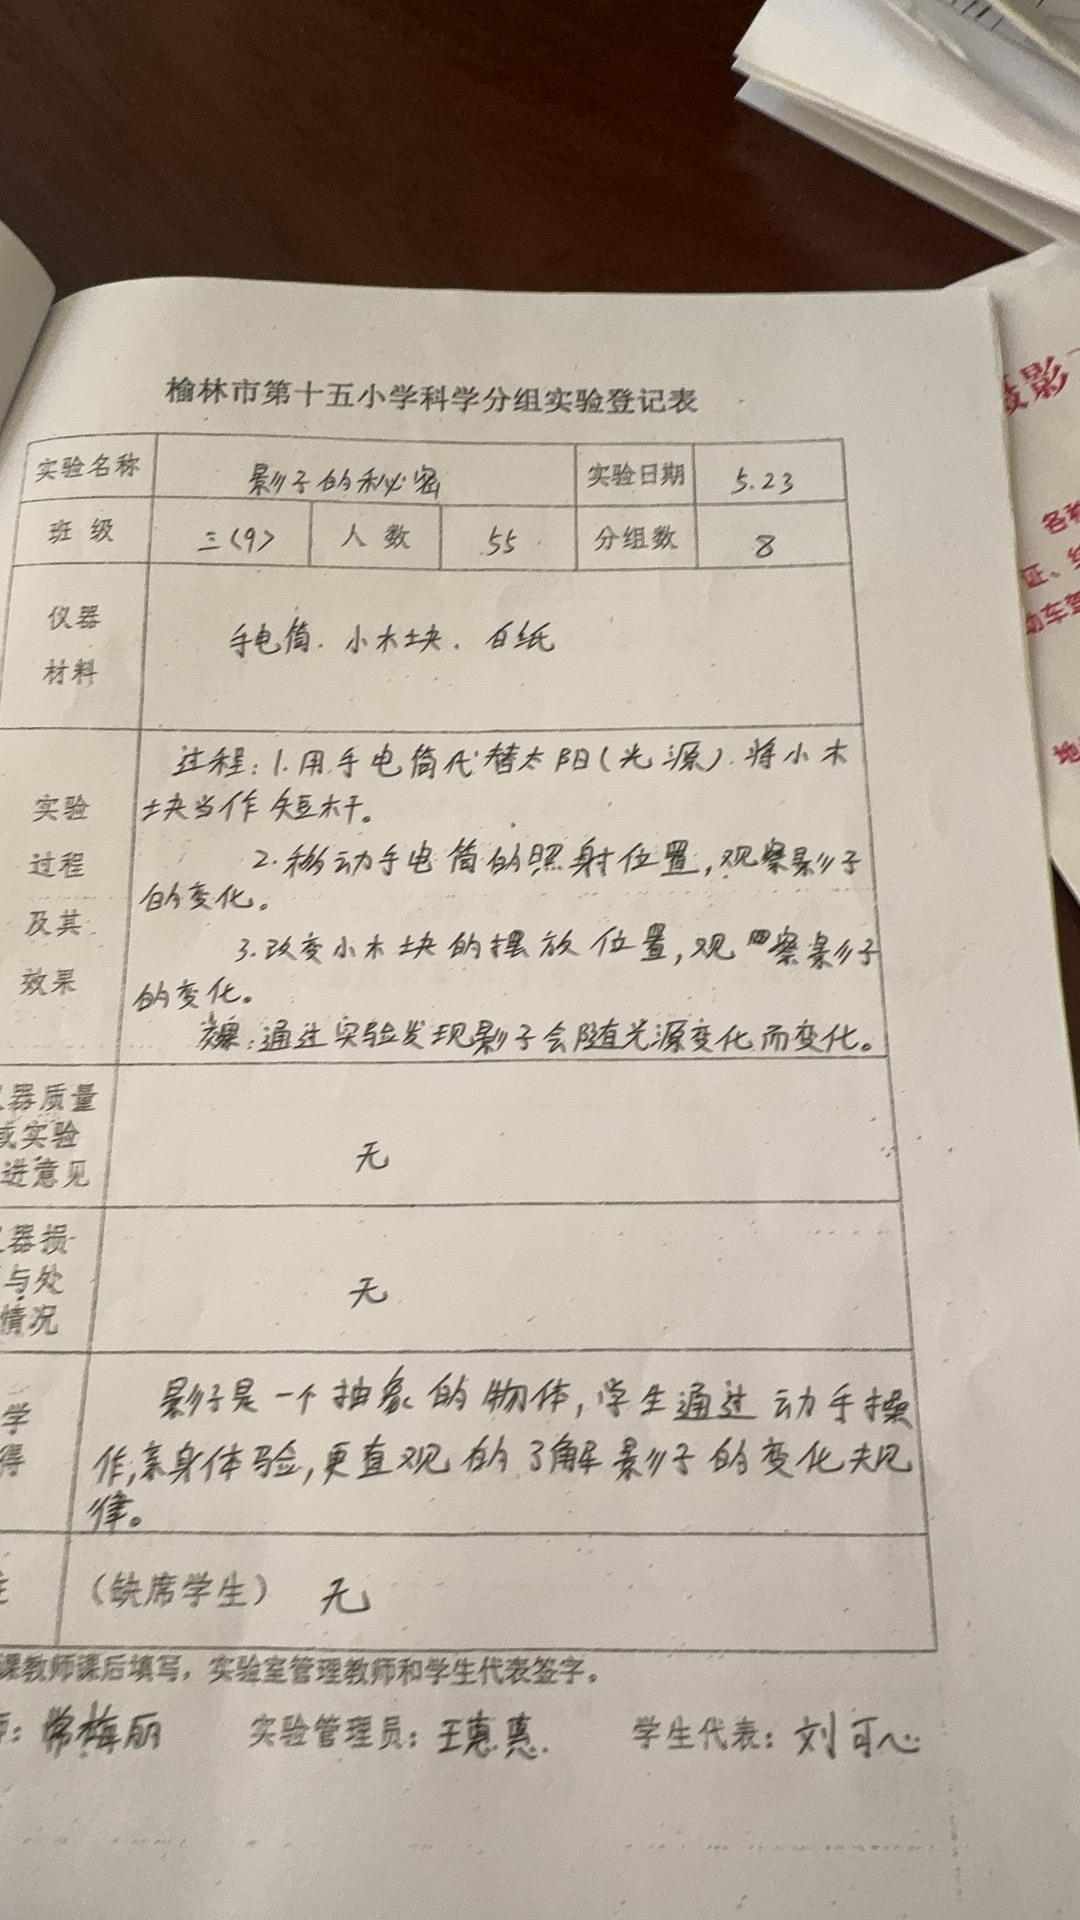 榆林市第十五小学科学分组实验登记表
实验名称 影子的秘密 实验日期 5.23
班级 三(9) 人数 55 分组数 8
仪器
材料
手电筒. 小木块. 白纸
实验
过程
及其
效果
过程:1.用手电筒代替太阳(光源).将小木
块当作短木干。
2.移动手电筒的照射位置,观察影子
的变化。
3.改变小木块的摆放位置,观察影子
的变化。
效果:通过实验发现影子会随光源变化而变化。
器质量
或实验
进意见
无
器损
与处
情况
无
学
得
影子是一个抽象的物体,学生通过动手操
作,亲身体验,更直观的了解影子的变化规
律。
(缺席学生) 无
课教师课后填写,实验室管理教师和学生代表签字。
师:常梅丽 实验管理员:王惠惠. 学生代表:刘可心
影
各种